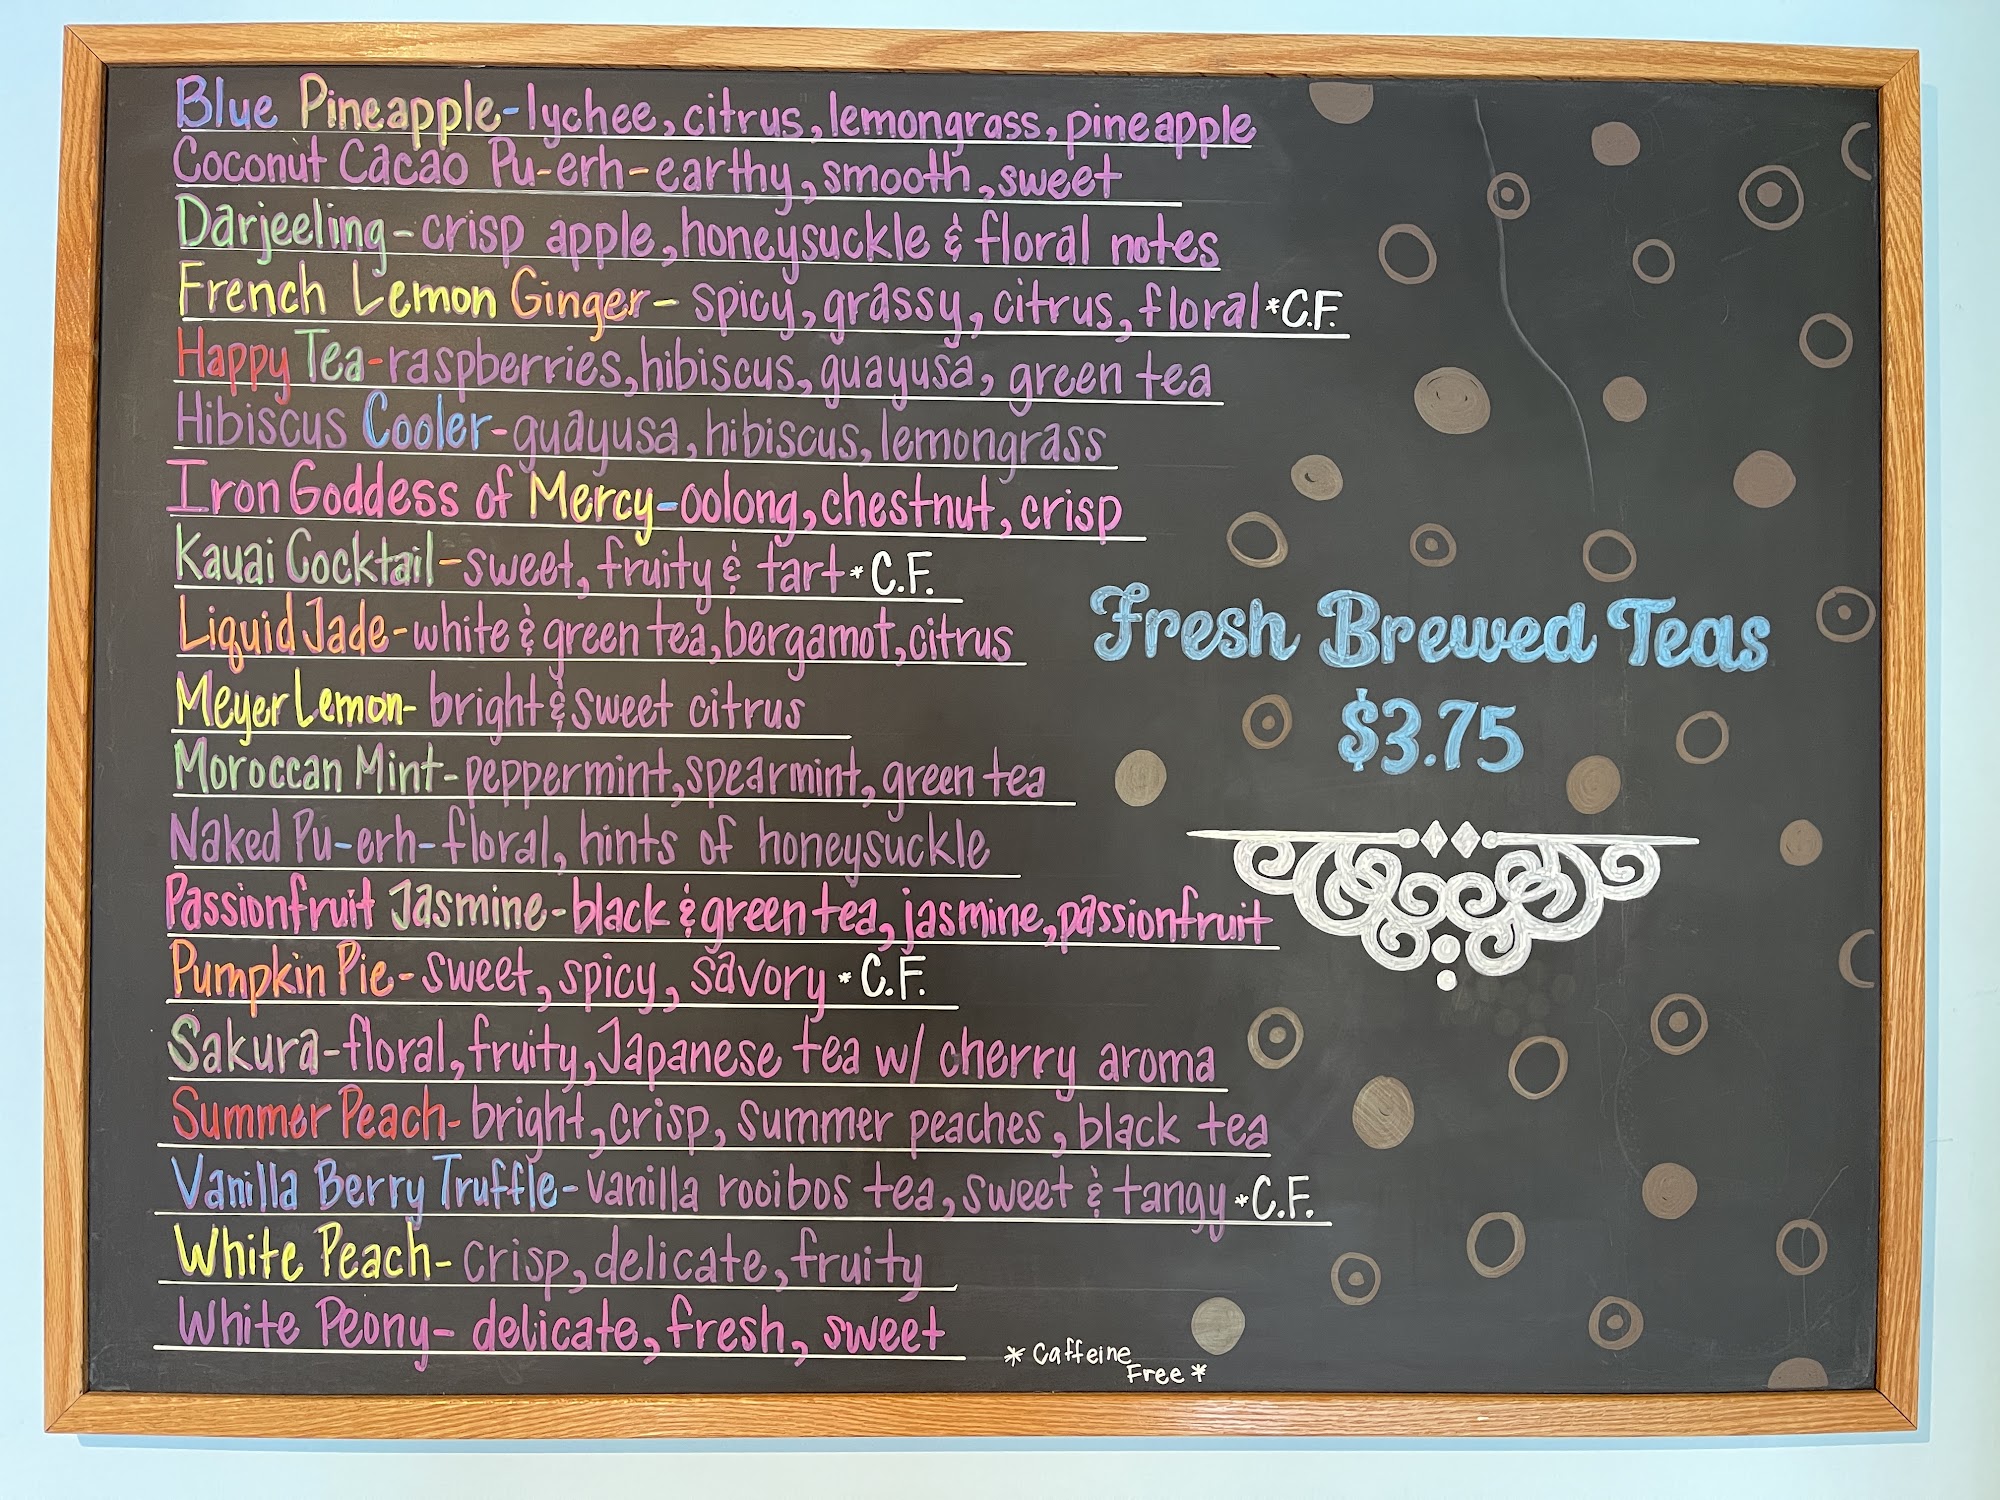 Blue Pineapple-lychee, citrus, lemongrass, pineapple
Coconut Cacao Pu-erh-earthy, smooth, sweet
Darjeeling-crisp apple, honeysuckle & floral notes
French Lemon Ginger- spicy, grassy, citrus, floral *C.F.
Happy Tea-raspberries, hibiscus, guayusa, green tea
Hibiscus Cooler-guayusa, hibiscus, lemongrass
Iron Goddess of Mercy-oolong, chestnut, crisp
Kauai Cocktail-sweet, fruity & tart *C.F.
Liquid Jade-white & green tea, bergamot, citrus
Meyer Lemon- bright & sweet citrus
Moroccan Mint-peppermint, spearmint, green tea
Naked Pu-erh-floral, hints of honeysuckle
Passionfruit Jasmine-black & green tea, jasmine, passionfruit
Pumpkin Pie-sweet, spicy, savory *C.F.
Sakura-floral, fruity, Japanese tea w/ cherry aroma
Summer Peach-bright, crisp, summer peaches, black tea
Vanilla Berry Truffle-vanilla rooibos tea, sweet & tangy *C.F.
White Peach-crisp, delicate, fruity
White Peony- delicate, fresh, sweet
* Caffeine
Free *
Fresh Brewed Teas
$3.75